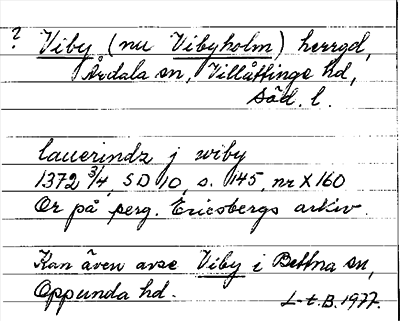 ? Viby (nu Vibyholm) herrgd,
Årdala sn, Villåttinge hd,
Söd. l.
lauerindz j wiby
1372 3/4, SD 10, s. 145, nr X 160
Or på perg. Ericsbergs arkiv.
Kan även avse Viby i Bettna sn,
Oppunda hd.
L-t. B. 1977.